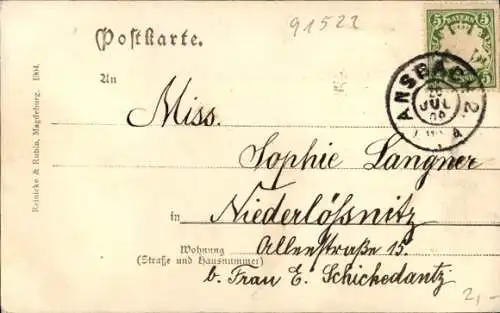 91522
Postkarte.
5 BAYERN 5
An
ANSBACH 2.
JUL
Miss.
Sophie Langner
in Niederlößnitz
Wohnung
(Straße und Hausnummer)
Alleestraße 15.
b. Frau E. Schickedantz
2,-
Reinicke & Rubin, Magdeburg. 1904.